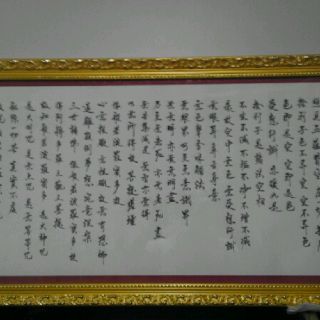 色不異空 空不異色
色即是空 空即是色
受想行識 亦復如是
舍利子是諸法空相
不生不滅不垢不淨 不增不減
是故空中無色無受想行識
無眼耳鼻舌身意
無色聲香味觸法
無眼界乃至無意識界
無無明亦無無明盡
乃至無老死 亦無老死盡
無苦集滅道 無智亦無得
以無所得故 菩提薩埵
依般若波羅蜜多故
心無罣礙無罣礙故無有恐怖
遠離顛倒夢想 究竟涅槃
三世諸佛 依般若波羅蜜多故
得阿耨多羅三藐三菩提
故知般若波羅蜜多 是大神咒
是大明咒 是無上咒 是無等等咒
能除一切苦 真實不虛